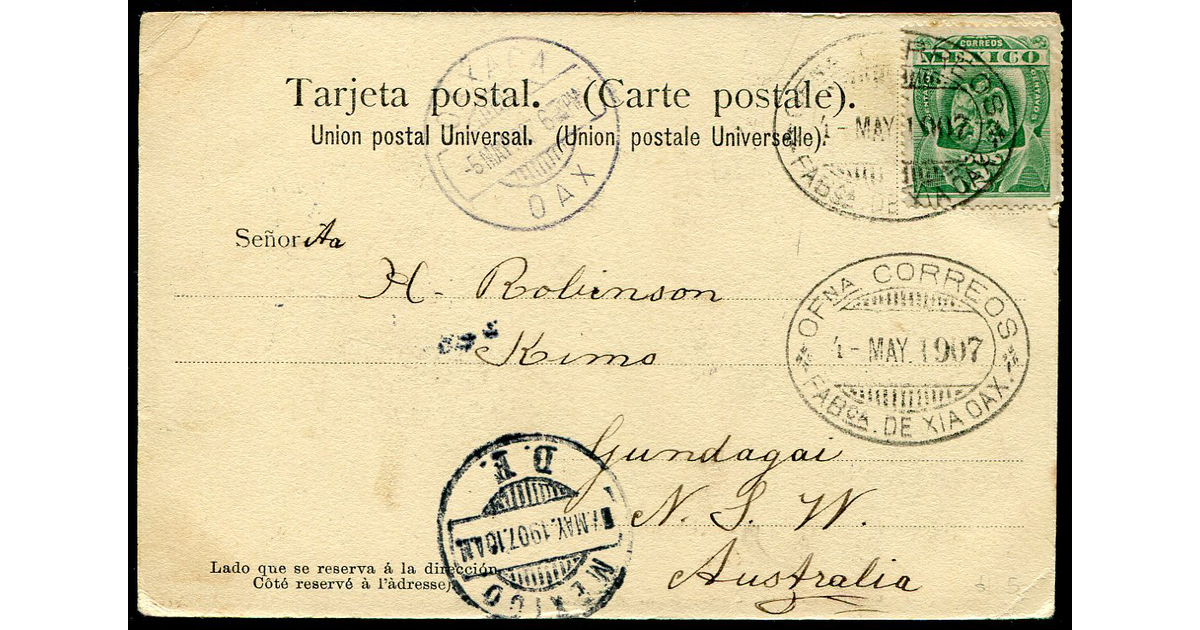 Tarjeta postal. (Carte postale).
Union postal Universal. (Union postale Universelle).
CORREOS
MEXICO
OFNA CORREOS
4 - MAY. 1907
FABCA. DE XIA OAX.
OAXACA
-5 MAY
PM
OAX
Señorita
H. Robinson
Kimo
Gundagai
N. S. W.
Australia
OFNA CORREOS
4 - MAY. 1907
FABCA. DE XIA OAX.
MEXICO
7 MAY. 1907. 10 A.M
D. F.
Lado que se reserva á la dirección
Côté reservé à l'àdresse)